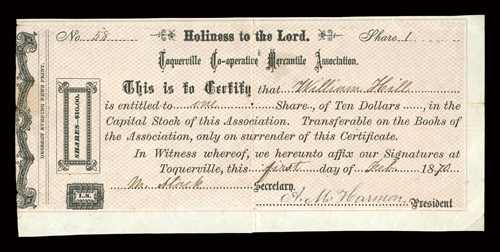 No. 58
Holiness to the Lord.
Share 1
Toquerville Co-operative Mercantile Association.
This is to Certify that William Hill
is entitled to one Share , of Ten Dollars , in the
Capital Stock of this Association. Transferable on the Books of
the Association, only on surrender of this Certificate.
In Witness whereof, we hereunto affix our Signatures at
Toquerville, this first day of Feb. 1870
Secretary.
A. M. Harmon President
SHARES=$10.00.
DESERET EVENING NEWS PRINT.
L.S.